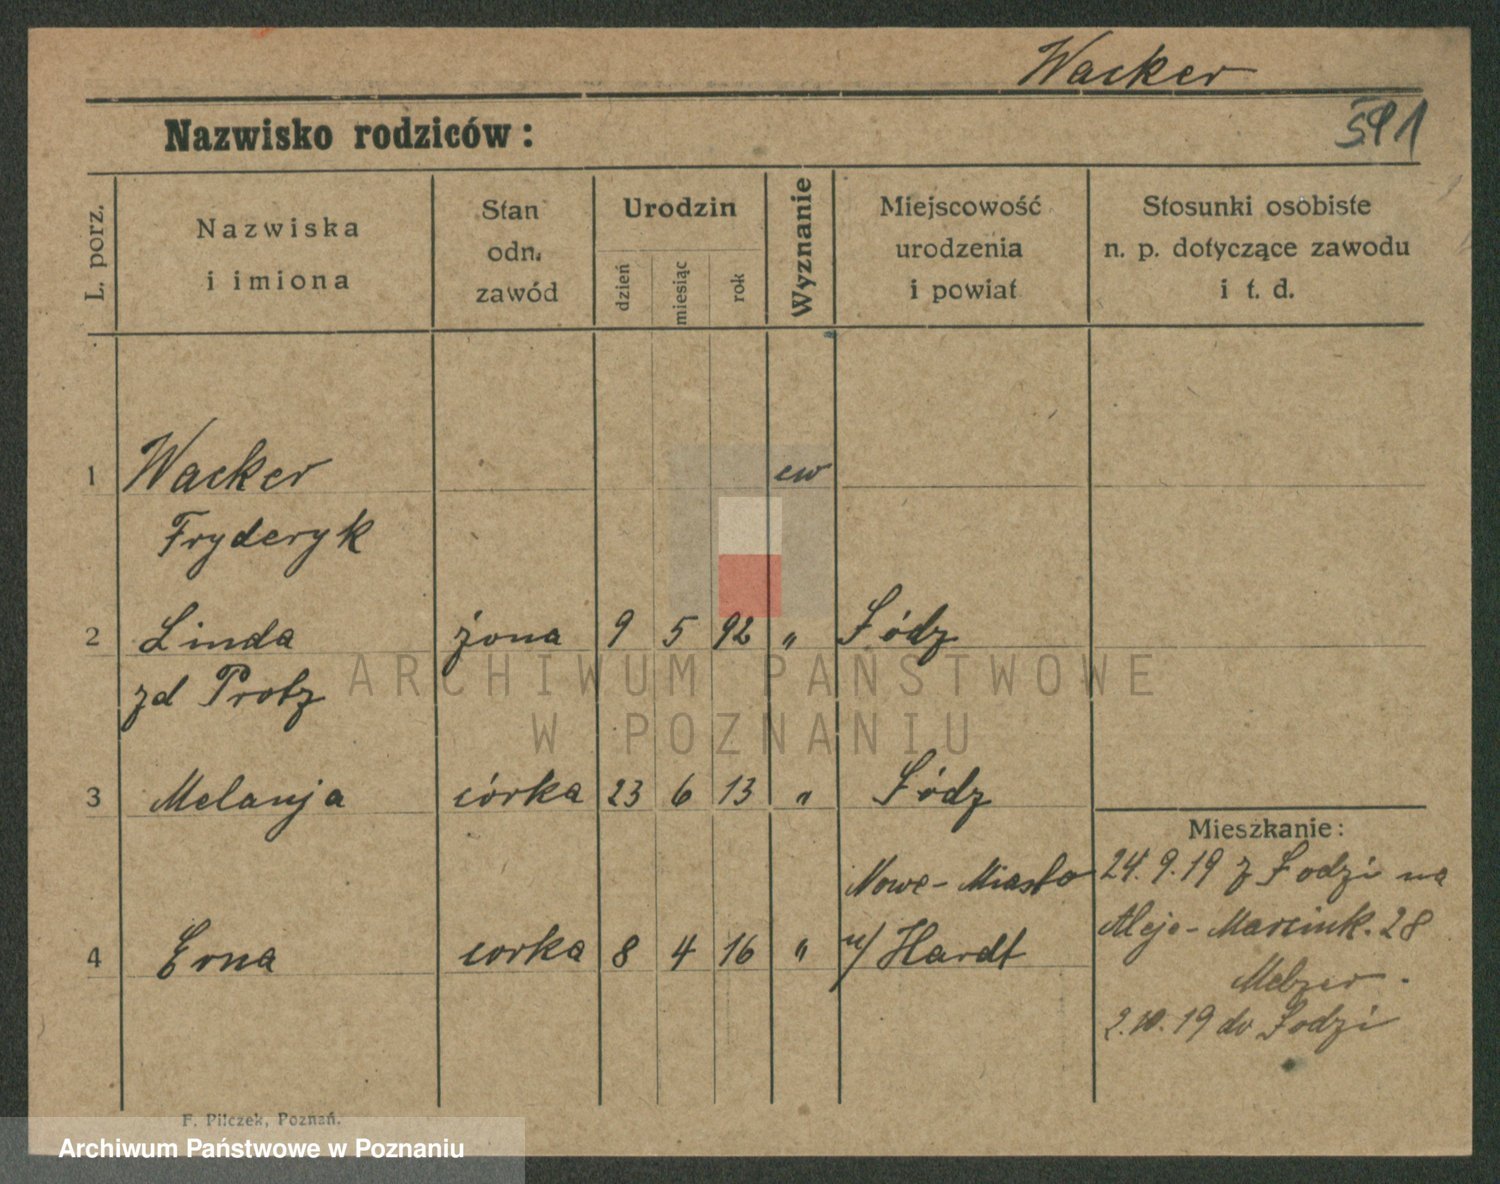 Wacker
591
Nazwisko rodziców:
L. porz.
Nazwiska
i imiona
Stan
odn.
zawód
Urodzin
dzień
miesiąc
rok
Wyznanie
Miejscowość
urodzenia
i powiat
Stosunki osobiste
n. p. dotyczące zawodu
i t. d.
1 Wacker ew
Fryderyk
2 Linda żona 9 5 92 " Łódz
zd Protz
3 Melanja córka 23 6 13 " Łódz
Mieszkanie:
Nowe-Miasto
24.9.19 z Łodzi na
Aleje-Marcink. 28
4 Erna corka 8 4 16 " n/Hardt
Melzer.
2.10.19 do Łodzi
F. Pilczek, Poznań.
ARCHIWUM PAŃSTWOWE
W POZNANIU
Archiwum Państwowe w Poznaniu